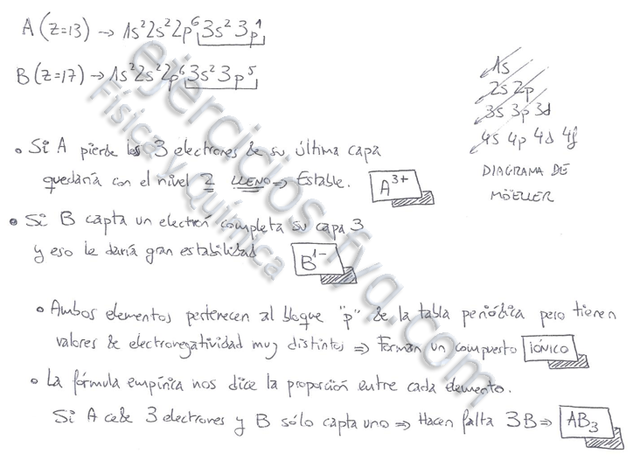 A (Z=13) → 1s² 2s² 2p⁶ 3s² 3p¹
B (Z=17) → 1s² 2s² 2p⁶ 3s² 3p⁵
1s
2s 2p
3s 3p 3d
4s 4p 4d 4f
DIAGRAMA DE
MÖELLER
• Si A pierde los 3 electrones de su última capa
quedaría con el nivel 2 LLENO ⇒ Estable. A³⁺
• Si B capta un electrón completa su capa 3
y eso le daría gran estabilidad B¹⁻
• Ambos elementos pertenecen al bloque "p" de la tabla periódica pero tienen
valores de electronegatividad muy distintos ⇒ Forman un compuesto iÓNiCO
• La fórmula empírica nos dice la proporción entre cada elemento.
Si A cede 3 electrones y B sólo capta uno ⇒ Hacen falta 3B ⇒ AB₃
ejercicios-fyq.com
Física y Química